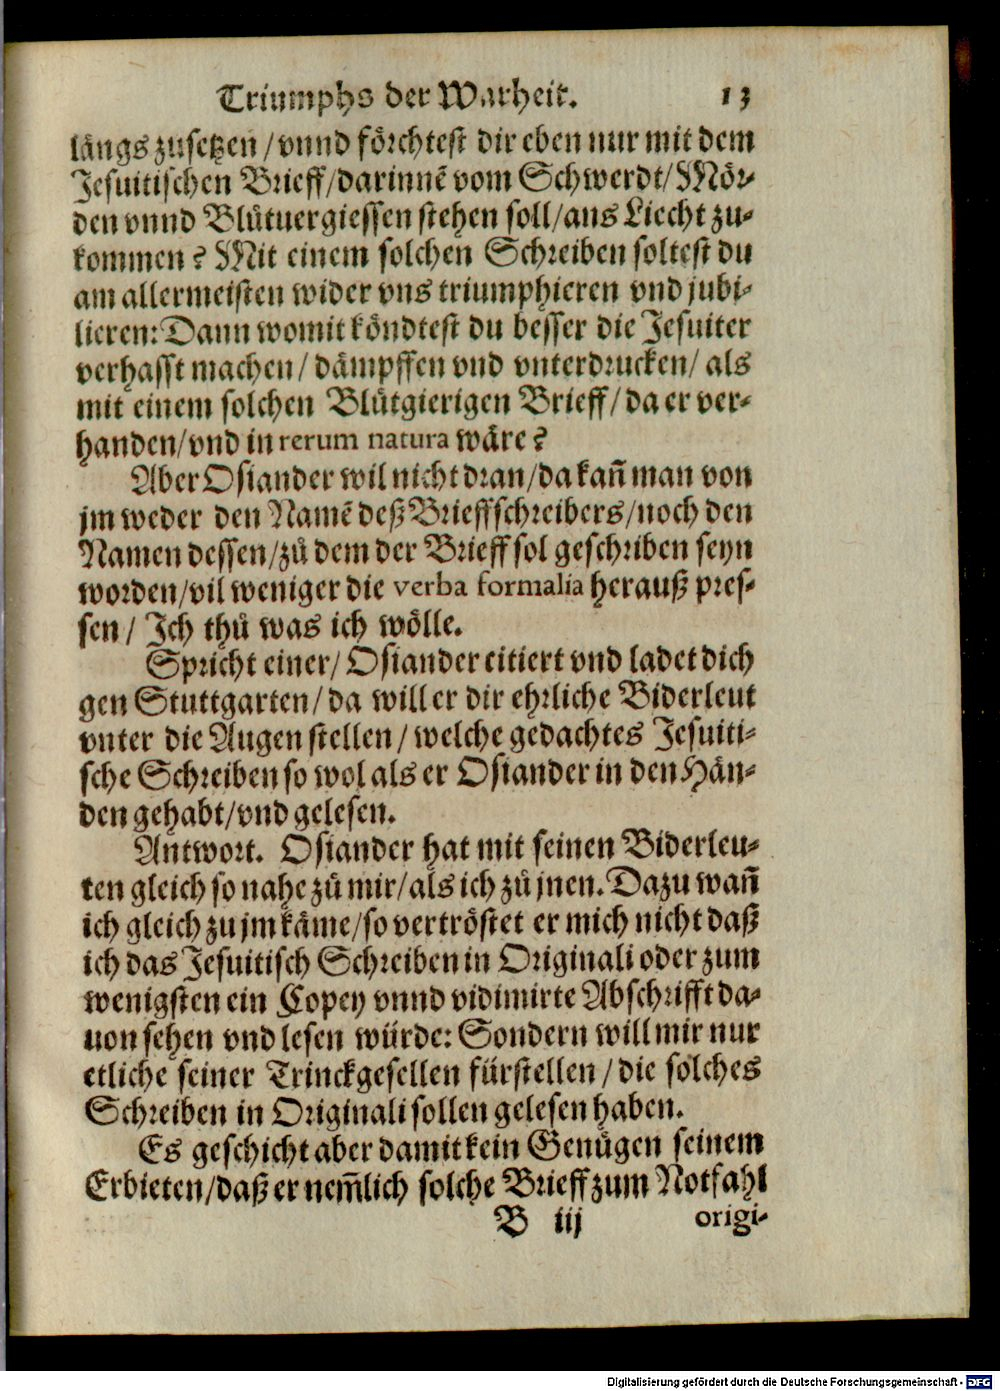 Triumphs der Warheit. 13
längs zusetzen / vnnd förchtest dir eben nur mit dem
Jesuitischen Brieff/darinnẽ vom Schwerdt/Mör-
den vnnd Blůtuergiessen stehen soll/ans Liecht zu-
kommen? Mit einem solchen Schreiben soltest du
am allermeisten wider vns triumphieren vnd jubi-
lieren: Dann womit köndtest du besser die Jesuiter
verhasst machen / dämpffen vnd vnterdrucken / als
mit einem solchen Blůtgierigen Brieff / da er ver-
handen/vnd in rerum natura wäre?
Aber Osiander wil nicht dran/da kañ man von
jm weder den Namẽ deß Brieffschreibers/noch den
Namen dessen/zů dem der Brieff sol geschriben seyn
worden/vil weniger die verba formalia herauß pres-
sen / Ich thů was ich wölle.
Spricht einer/ Osiander citiert vnd ladet dich
gen Stuttgarten / da will er dir ehrliche Biderleut
vnter die Augen stellen / welche gedachtes Jesuiti-
sche Schreiben so wol als er Osiander in den Hän-
den gehabt/vnd gelesen.
Antwort. Osiander hat mit seinen Biderleu-
ten gleich so nahe zů mir/als ich zů jnen. Dazu wañ
ich gleich zu jm käme/so vertröstet er mich nicht daß
ich das Jesuitisch Schreiben in Originali oder zum
wenigsten ein Copey vnnd vidimirte Abschrifft da-
uon sehen vnd lesen würde: Sondern will mir nur
etliche seiner Trinckgesellen fürstellen / die solches
Schreiben in Originali sollen gelesen haben.
Es geschicht aber damit kein Genůgen seinem
Erbieten/daß er nem̃lich solche Brieff zum Notfahl
B iij origi-
Digitalisierung gefördert durch die Deutsche Forschungsgemeinschaft - DFG